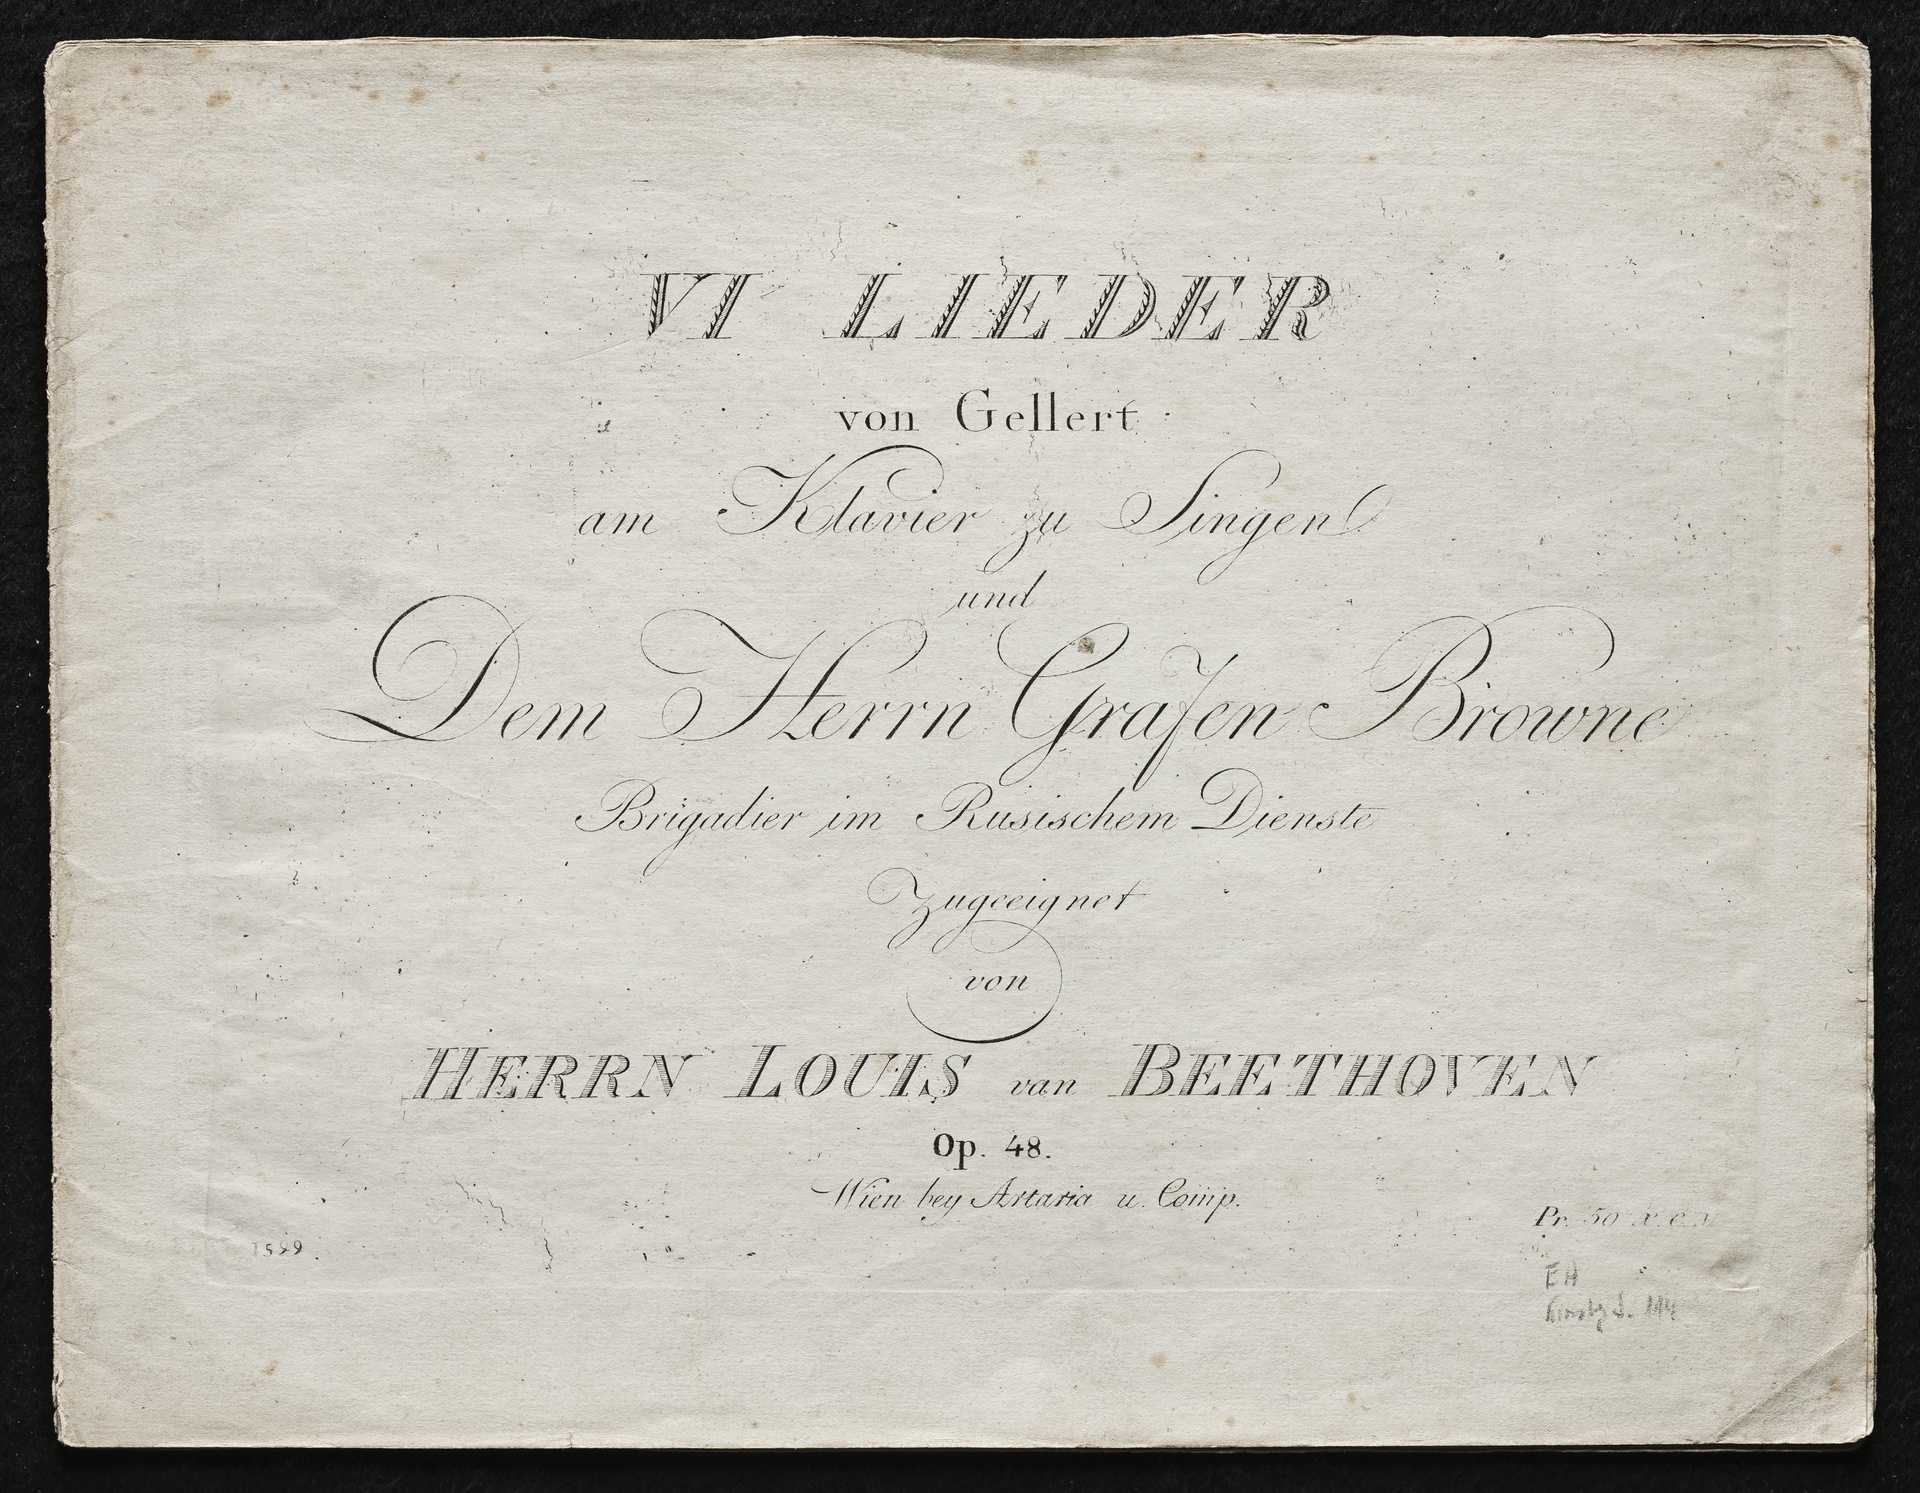 VI LIEDER
von Gellert
am Klavier zu Singen
und
Dem Herrn Grafen Browne
Brigadier im Rusischem Dienste
Zugeeignet
von
HERRN LOUIS van BEETHOVEN
Op. 48.
Wien bey Artaria u. Comp.
Pr. 50 x.
1599
EA